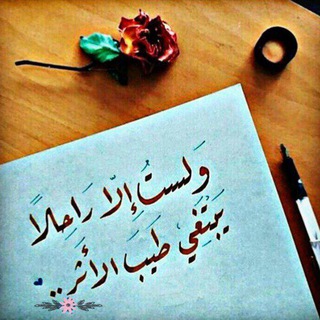 وَلستُ إلّا رَاحِلاً
يَبْتَغِي طَيبَ الأَثَر..